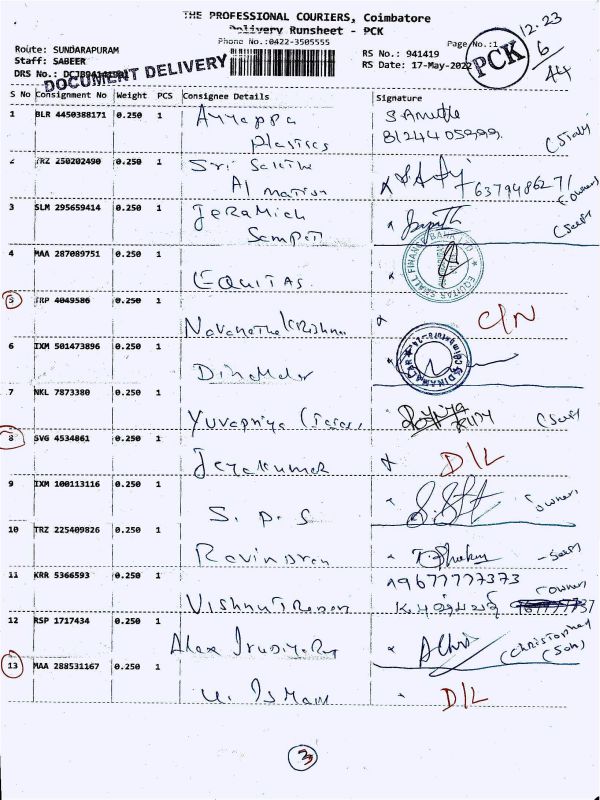 THE PROFESSIONAL COURIERS, Coimbatore
Delivery Runsheet - PCK
Phone No.:0422-3505555
12.23
6
44
PCK
Route: SUNDARAPURAM
Staff: SABEER
DRS No.:
RS No.: 941419
Page No.:1
RS Date: 17-May-2022
DOCUMENT DELIVERY
S No Consignment No Weight PCS Consignee Details Signature
1 BLR 4450388171 0.250 1 Ayyappa
Plastics
8124405999
2 TRZ 250202490 0.250 1 Sri Sakthi
6379486271
(owner)
3 SLM 295659414 0.250 1 Jeramich
4 MAA 287089751 0.250 1 EQUITAS
EQUITAS SMALL FINANCE BANK LTD
5 TRP 4049586 0.250 1 Navaneetha Krishnan C/N
6 IXM 501473896 0.250 1 Dinamalar
DINAMALAR
7 NKL 7873380 0.250 1 Yuvapriya
8 SVG 4534861 0.250 1 Jeyakumar D/L
9 IXM 100113116 0.250 1 S.P.S owner
10 TRZ 225409826 0.250 1 Ravindran
11 KRR 5366593 0.250 1 Vishnu 9677777373
owner
12 RSP 1717434 0.250 1 Alex (Christopher
(Son)
13 MAA 288531167 0.250 1 D/L
3